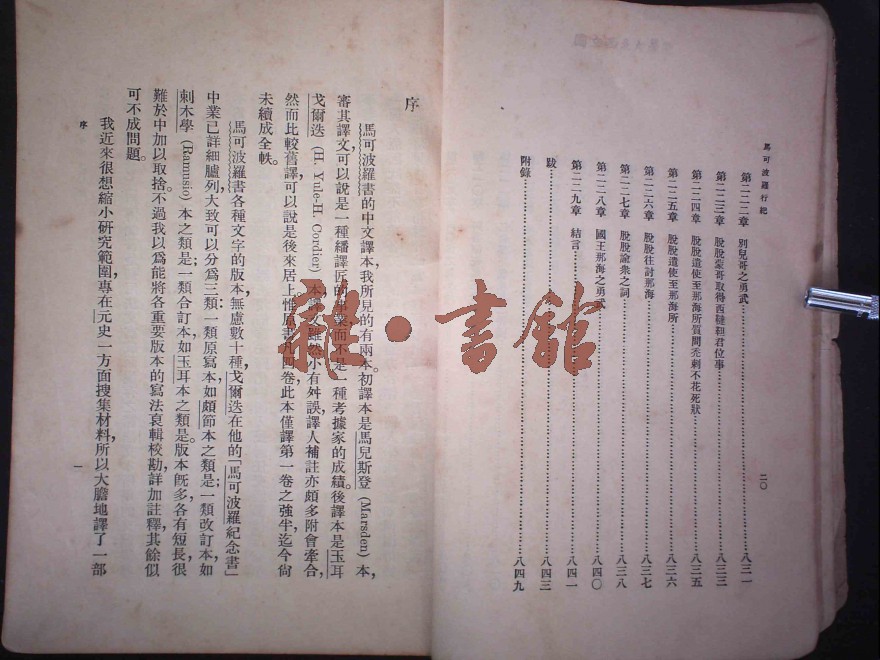 馬可波羅行紀
二〇
第二二二章 別兒哥之勇武……八三一
第二二三章 脫脫蒙哥取得西韃靼君位事……八三三
第二二四章 脫脫遣使至那海所質問禿剌不花死狀……八三五
第二二五章 脫脫遣使至那海所……八三六
第二二六章 脫脫往討那海……八三七
第二二七章 脫脫諭衆之詞……八三八
第二二八章 國王那海之勇武……八四〇
第二二九章 結言……八四一
跋……八四三
附錄……八四九
序
馬可波羅書的中文譯本我所見的有兩本。初譯本是馬兒斯登 (Marsden) 本,
審其譯文可以說是一種繙譯匠的事業而不是一種考據家的成績。後譯本是玉耳
戈爾迭 (H. Yule-H. Cordier) 本譯文雖然小有舛誤,譯人補註亦頗多附會牽合,
然而比較舊譯可以說是後來居上。惟原書凡四卷,此本僅譯第一卷之強半,迄今尙
未續成全帙。
馬可波羅書各種文字的版本,無慮數十種,戈爾迭在他的「馬可波羅紀念書」
中業已詳細臚列,大致可以分爲三類:一類原寫本,如頗節本之類是;一類改訂本,如
剌木學 (Ramusio) 本之類是;一類合訂本,如玉耳本之類是。版本旣多,各有短長,很
難於中加以取捨。不過我以爲能將各重要版本的寫法裒輯校勘,詳加註釋,其餘似
可不成問題。
我近來很想縮小研究範圍,專在元史一方面搜集材料,所以大膽地譯了一部
序
一
雜·書館